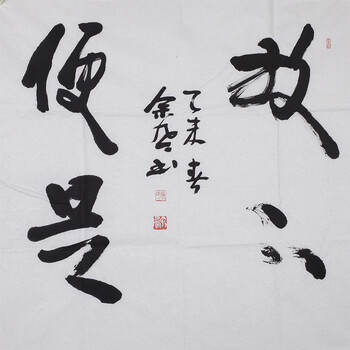 放下
便是
乙未春
余��书